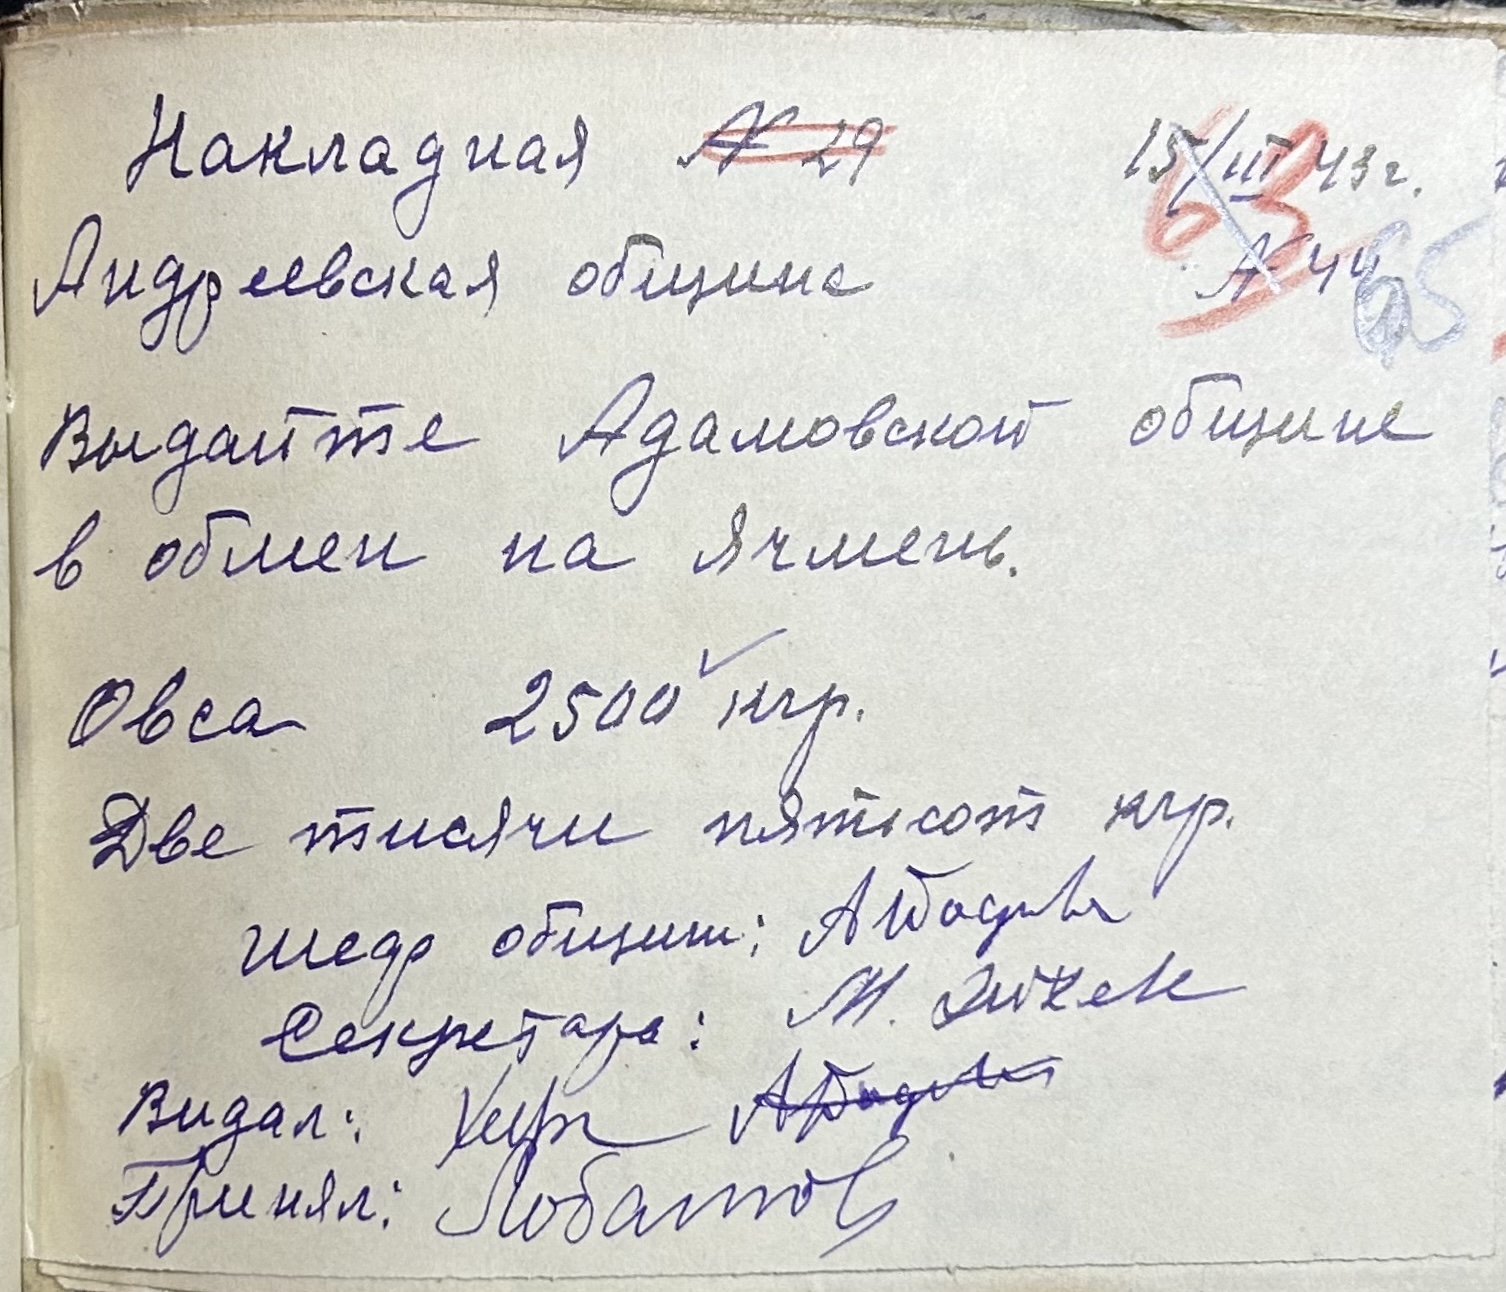 Накладная № 29 15/III 43 г.
63
Андреевская община № 44
65
Выдайте Адамовской общине
в обмен на ячмень.
Овса 2500 кгр.
Две тисячи пятьсот кгр.
общины:
Секретарь: М.
Видал:
Принял: Лобатов